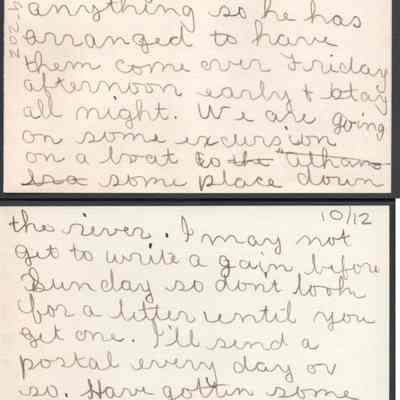 anything so he has
arranged to have
them come over Friday
afternoon early + stay
all night. We are going
on some excursion
on a boat to the "Athan
is a some place down
202-4
10/12
the river. I may not
get to write again before
Sunday so dont look
for a letter until you
get one. I'll send a
postal every day or
so. Have gotten some